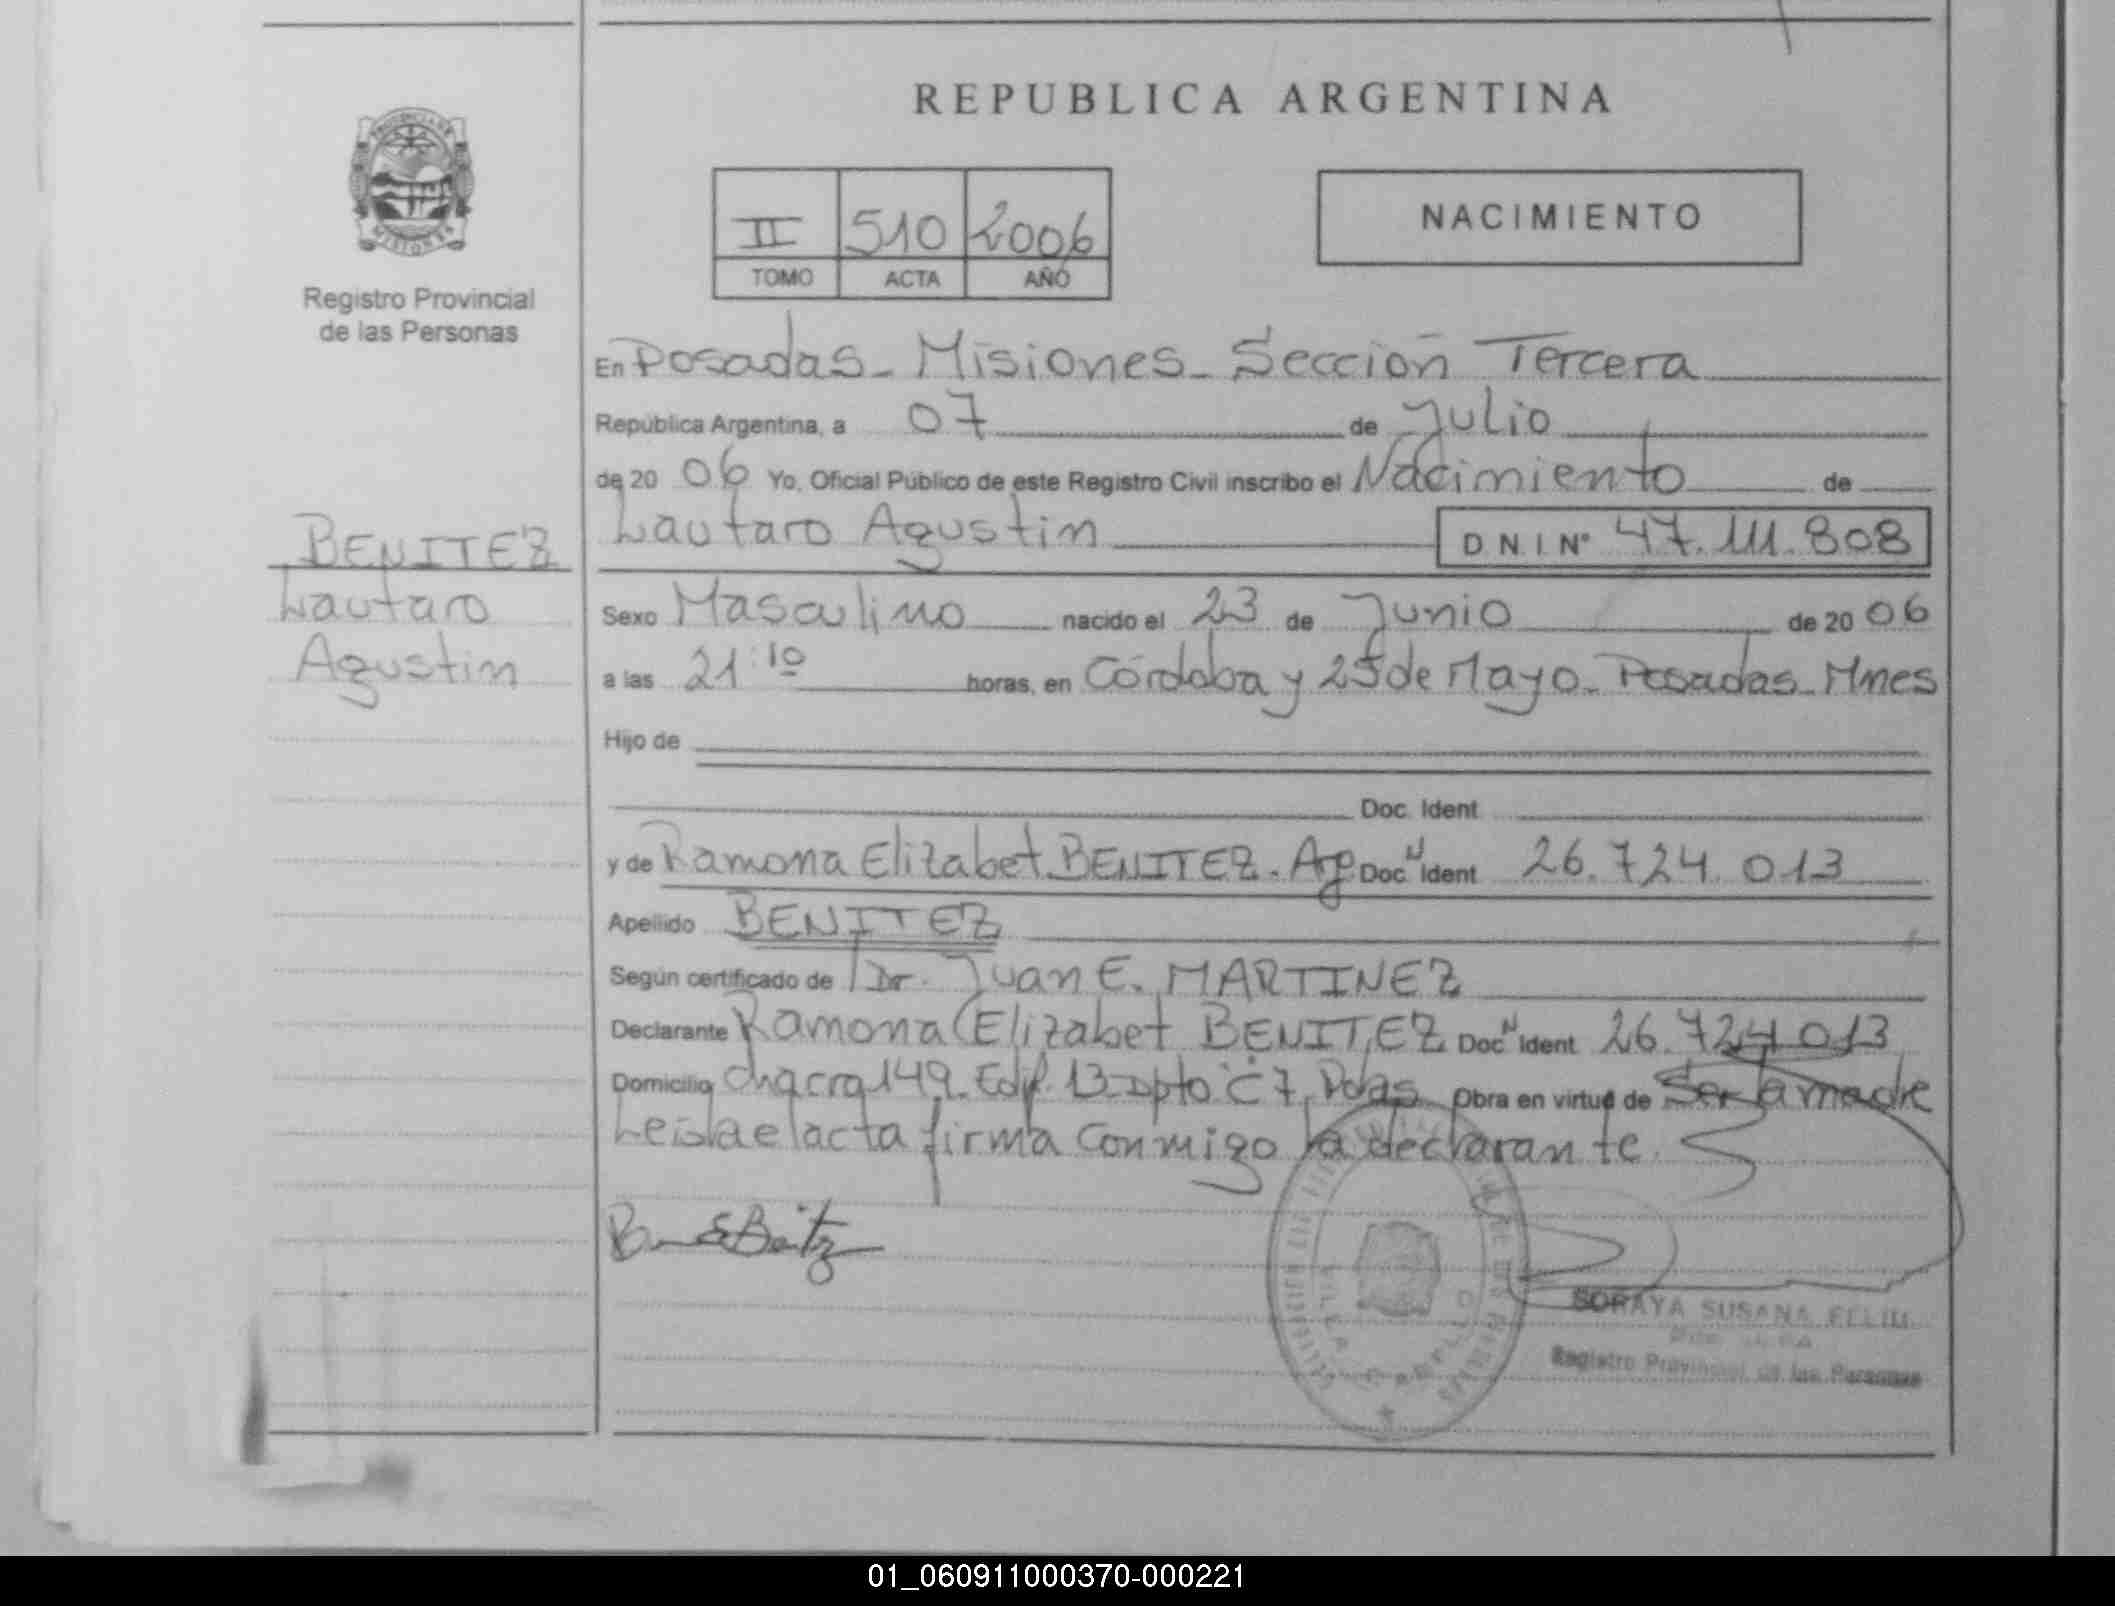 REPUBLICA ARGENTINA
PROVINCIA DE
MISIONES
Registro Provincial
de las Personas
II 510 2006
TOMO ACTA AÑO
NACIMIENTO
En Posadas - Misiones - Sección Tercera
República Argentina, a 07 de Julio
de 20 06 Yo, Oficial Público de este Registro Civil inscribo el Nacimiento de
Lautaro Agustin D N.I. N° 47.111.808
BENITEZ
Lautaro
Agustin
Sexo Masculino nacido el 23 de Junio de 20 06
a las 21:10 horas, en Córdoba y 25 de Mayo - Posadas - Mnes
Hijo de
Doc. Ident
y de Ramona Elizabet BENITEZ. Ag Doc N Ident 26.724.013
Apellido BENITEZ
Según certificado de Dr. Juan E. MARTINEZ
Declarante Ramona Elizabet BENITEZ Doc N Ident 26.724.013
Domicilio chacra 149. Edif. 13 - Dpto C 7. Pdas Obra en virtud de Ser la madre
Leida el acta firma conmigo la declarante.
SORAYA SUSANA FELIU
Registro Provincial de las Personas
01_060911000370-000221